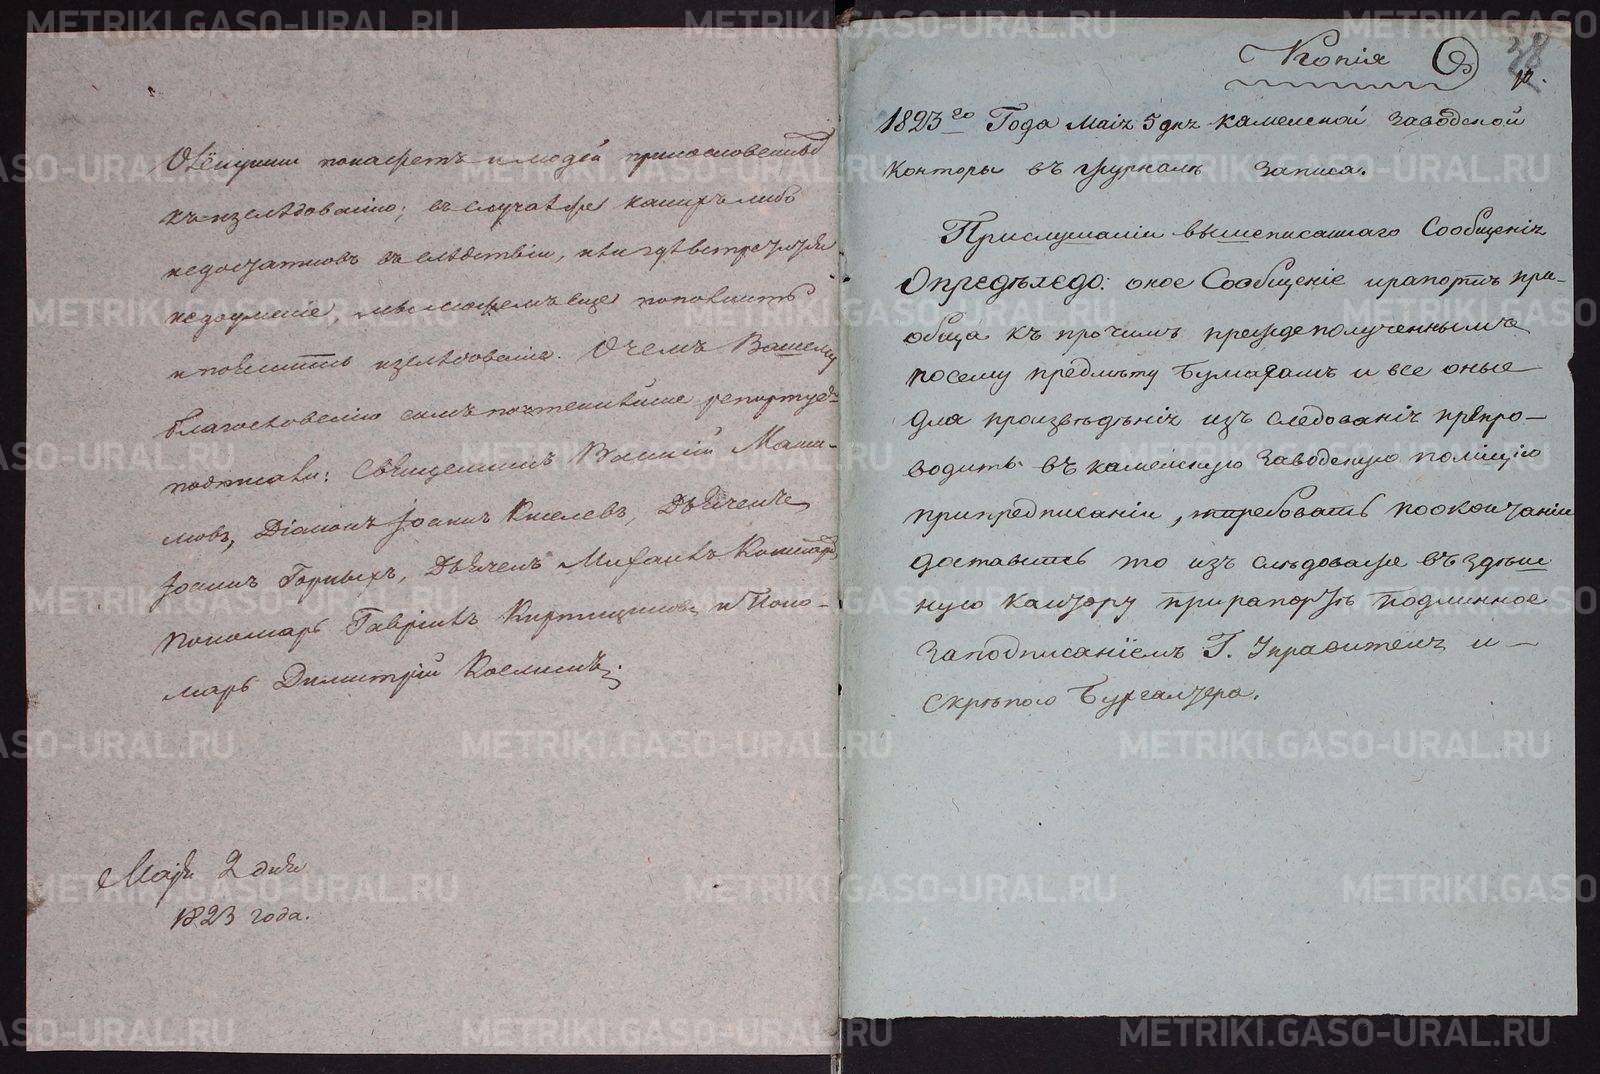 къ изслѣдованію; въ случаѣ же какихъ либо
недостатковъ въ слѣдствіи, или гдѣ встрѣтится
недоумѣніе, еще пополнить
изслѣдованіе. О чемъ Вашему
благословенію симъ почтеннѣйше репортуемъ
подписали: Священникъ Василій Мама-
ловъ, Діаконъ Іоаннъ Киселевъ, Дьячекъ
Іоаннъ Горныхъ, Дьячекъ Михаилъ
Пономарь Гавріилъ Кирпищиковъ и Поно-
марь Димитрій
Маія 2 дня
1823 года.
Копія
38
1823го Года Маія 5 дня Каменской Заводской
Конторы въ журналѣ Записа.
Прислушаніи вышеписаннаго Сообщенія
Опредѣлѣдо: оное Сообщеніе ирапортъ при-
обща къ прочимъ преждеполученнымъ
посему предмѣту бумагамъ и все оные
для произвѣдѣнія изъ следованія препро-
водить въ каменскую Заводскую полицію
припредписаніи, итребовать поокончаніи
доставить то изъ слѣдованіе въ здѣш
нюю Кантору прирапортѣ подлинное
Заподписаніемъ Г. Управителя и
Скрѣпою Бухгалтера.
METRIKI.GASO-URAL.RU